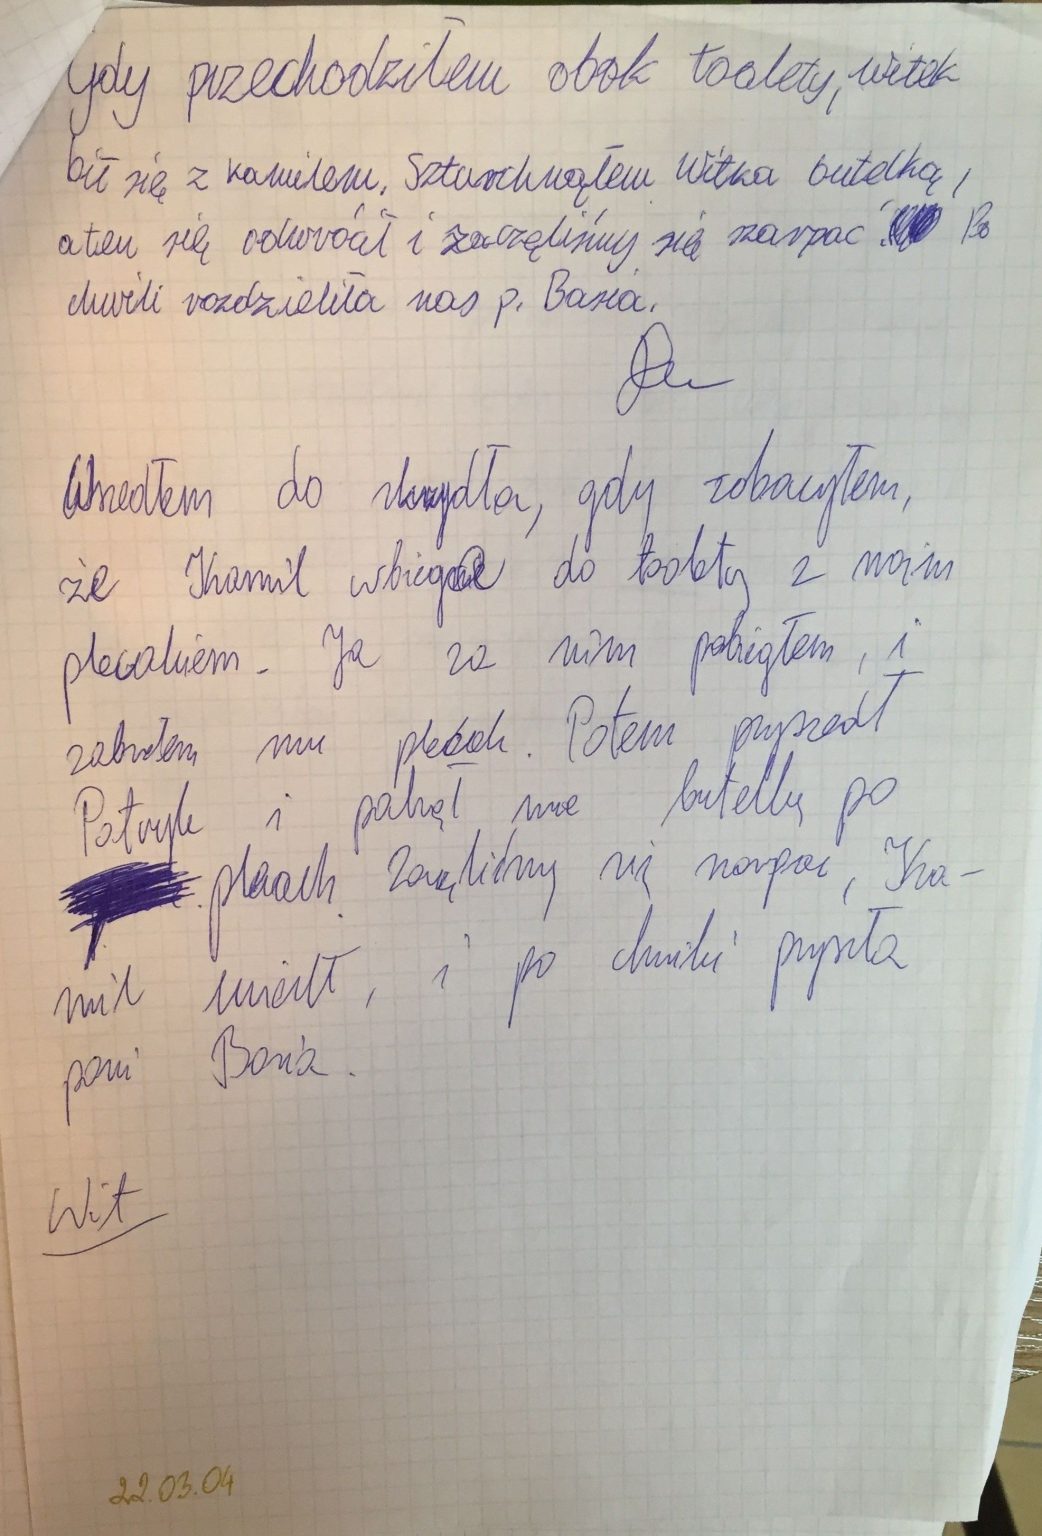 Gdy przechodziłem obok toalety, Witek
bił się z Kamilem. Szturchnąłem Witka butelką,
a ten się odwrócił i zaczęliśmy się szarpać. Po
chwili rozdzieliła nas p. Basia.
Wszedłem do skrzydła, gdy zobaczyłem,
że Kamil wbiega do toalety z moim
plecakiem. Ja za nim pobiegłem, i
zabrałem mu plecak. Potem przyszedł
Patryk i palnął mnie butelką po
plecach. Zaczęliśmy się szarpać, Ka-
mil uciekł, i po chwili przyszła
pani Basia.
Wit
22.03.04